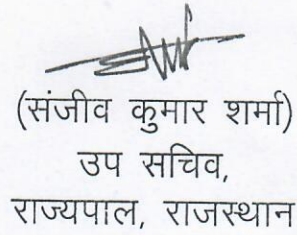 (संजीव कुमार शर्मा)
उप सचिव,
राज्यपाल, राजस्थान